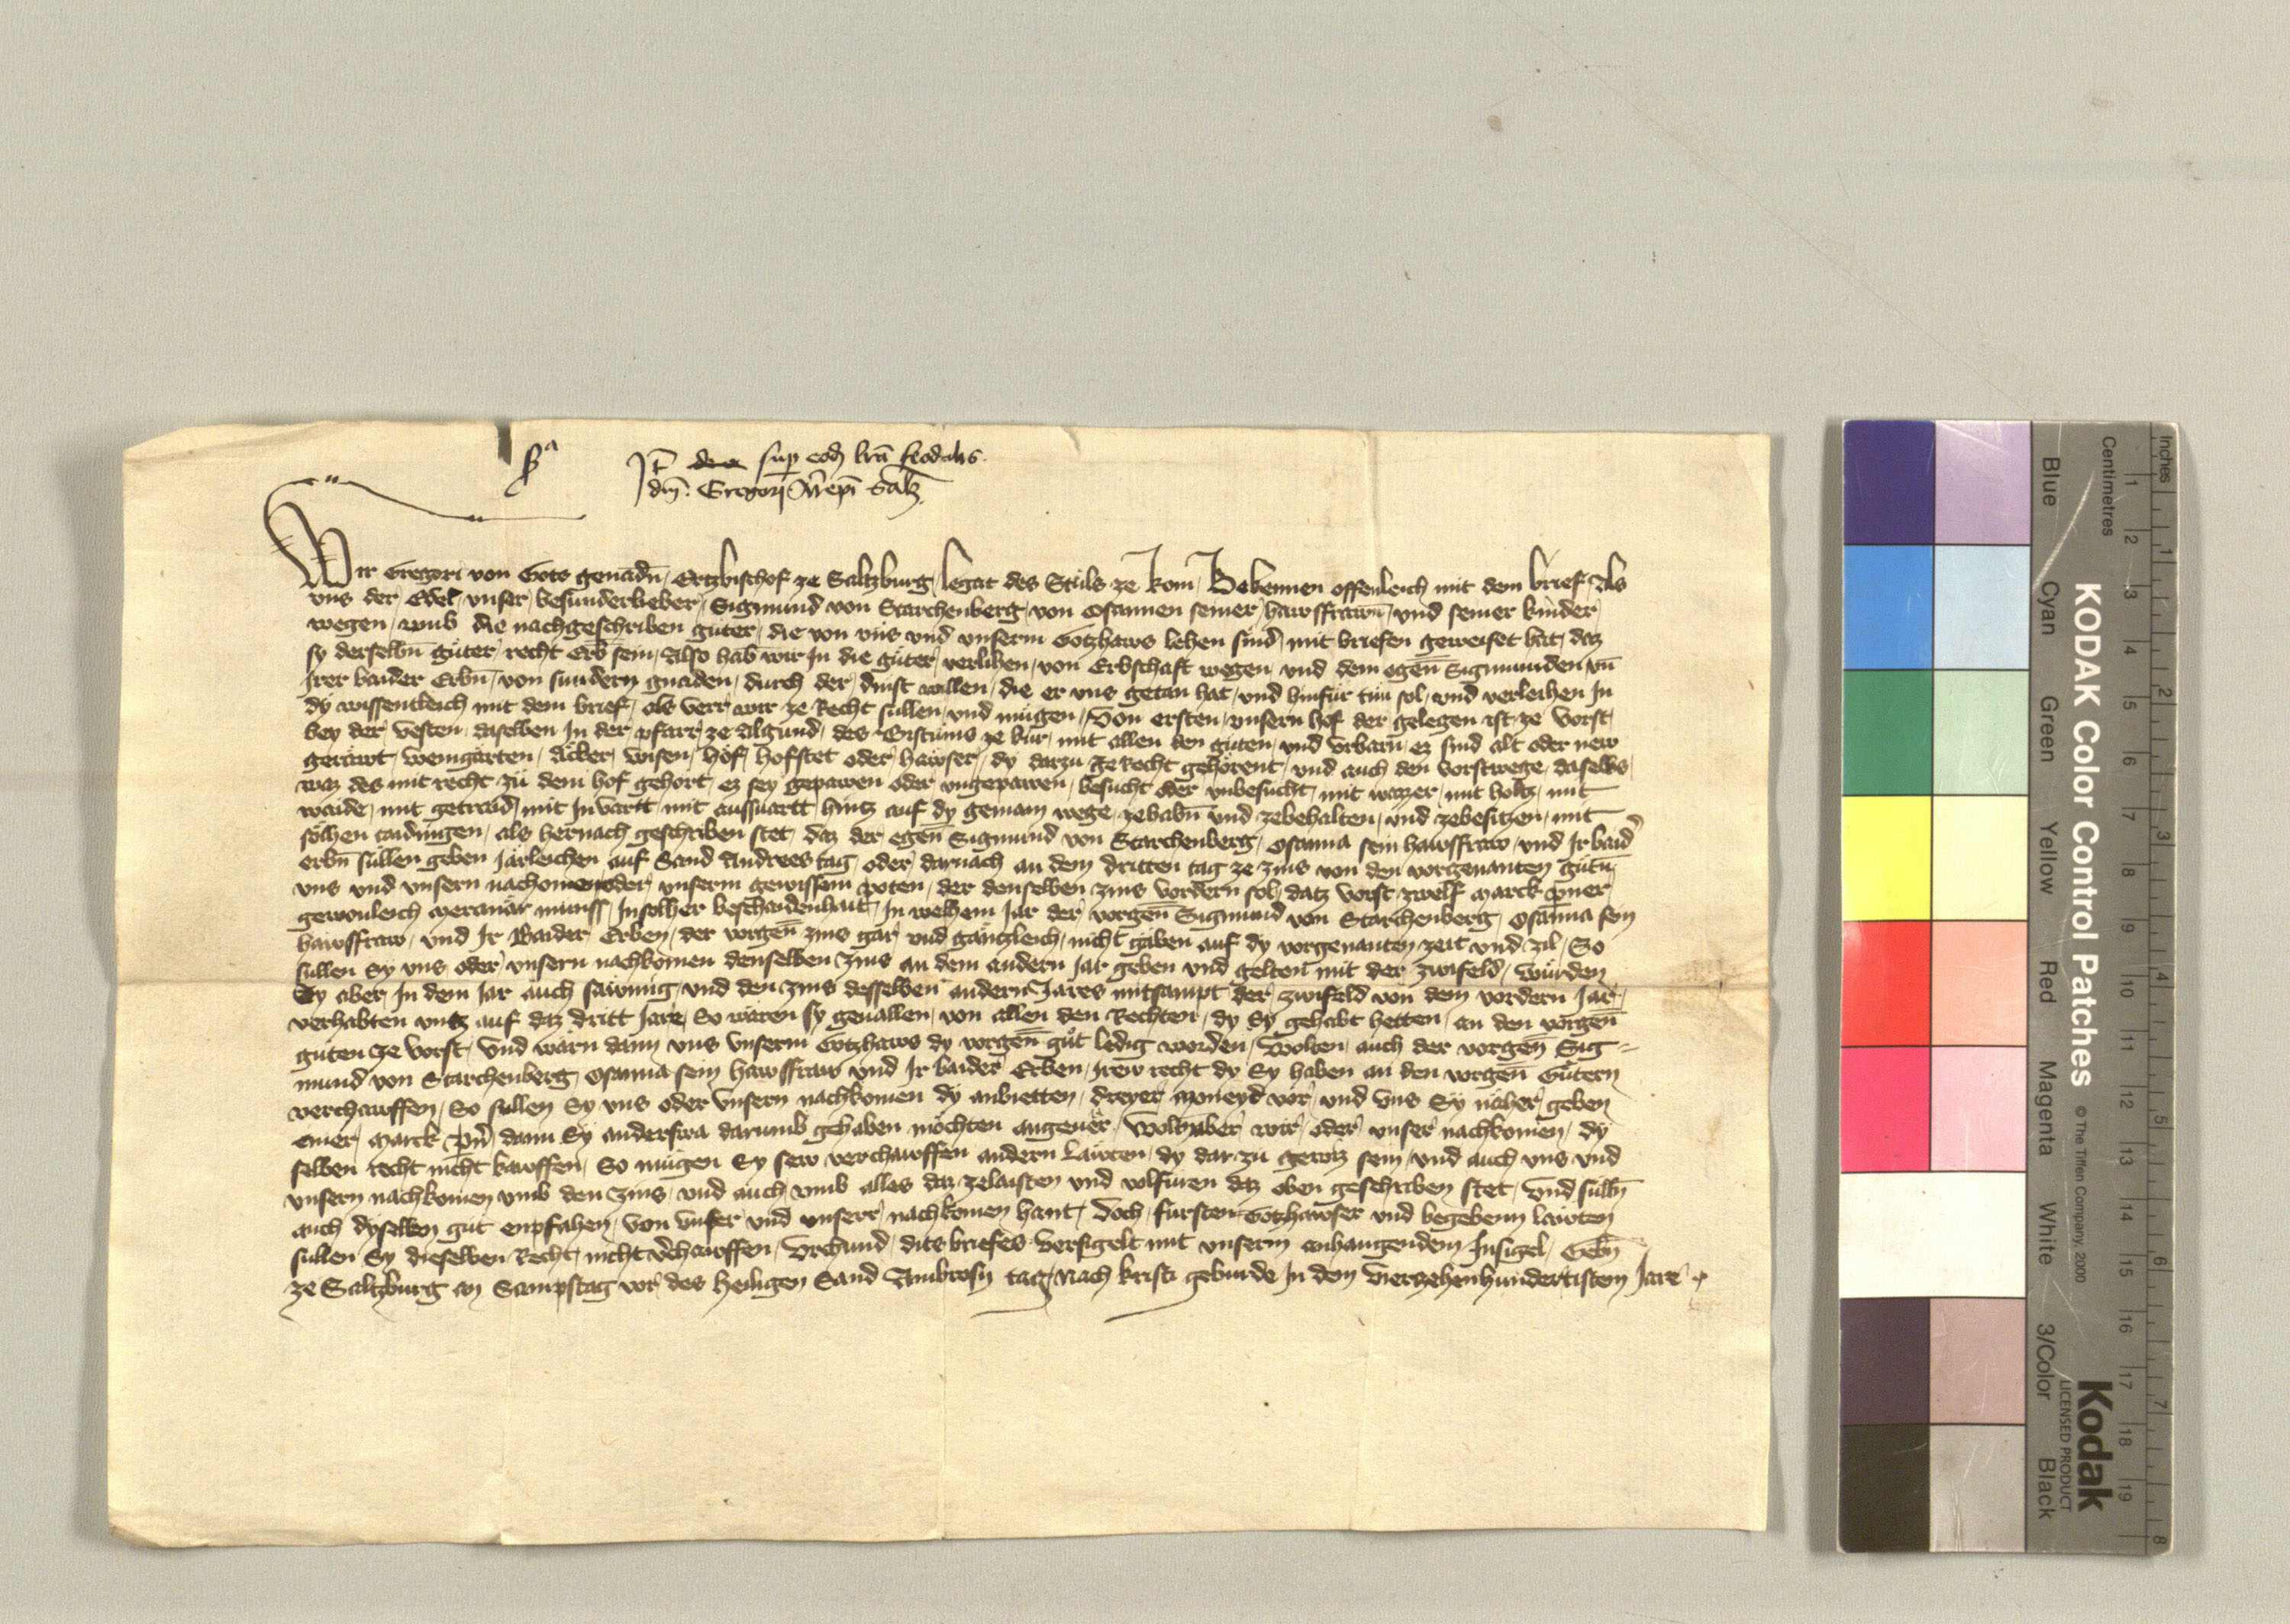 Jt sup eod lra feodalis
dni Gregorij Arepi Salz
Wir Gregori von Gots genadn Ertzbischof ze Saltzburg legat des Stuls ze Rom Bekennen offenleich mit dem brief Als
vns der Edel vnser besunderlieber Sigmund von Starchenberg von Osannen seiner hawsfrawn vnd seiner kinder
wegen vmb die nachgeschriben guter die von vns vnd vnserm Gotzhaws lehen sind mit briefen geweiset hat daz
sy derselbn güter recht Erb sein Also hab wir In die güter verlihen von Erbschaft wegen vnd dem egen Sigmunden vn
Jrer baider Erbn von sundern gnaden durch der dinst willen die er vns getan hat vnd hinfür tün sol vnd verleihen In
dy wissentleich mit dem brief als verr wir ze Recht sullen vnd mügen Von ersten vnsern hof der gelegen ist ze Vorst
bey der vesten daselben In der pfarr ze Algund des Bistums ze kur mit allen den guten vnd vrbarn ez sind alt oder new
gerawt weingärten Äcker wisen höf hofstet oder häwser dy darzu ze Recht gehörent vnd auch den Vorstwege daselbs
waz des mit recht zu dem hof gehort ez sey gepawen oder vngepawen besucht oder vnbesucht mit wazzer mit holtz mit
waide mit getraid mit Invartt mit aussuartt hintz auf dy gemain wege zehabn vnd zebehalten vnd zebesitzen mit
sölhen taidingen als hernach geschriben stet daz der egen Sigmund von Starchenberg Osanna sein hawsfraw vnd Ir baid
erbn süllen geben Järleichen auf Sand Andrees tag oder darnach an dem dritten tag ze zins von den vorgenanten gütn
vns vnd vnsern nachomen oder vnserm gewissem poten der denselben zins vordern sol datz Vorst zwelf March perner
gewonleich Meraner munss Insolher beschaidenhait In welhem Jar der vorgen Sigmund von Starchenberg Osanna sein
hawsfraw vnd Ir Baider Erben der vorgen zins gar vnd gänzleich nicht gäben auf dy vorgenanten zeit vnd zil So
süllen Sy vns oder vnsern nachkomen denselben Zins an dem andern Jar geben vnd gelten mit der zwifeld Würden
Sy aber In dem Jar auch säwmig vnd den zins desselben andern Jares mitsampt der zwifeld von dem vordern Jar
verhabten vntz auf daz dritt Jare So wären sy geuallen von allen den Rechten dy Sy gehabt hetten an den vorgen
guten ze Vorst vnd wärn dann vns vnserm Gotzhaws dy vorgen güt ledig worden Wolten auch der vorgen Sig=
mund von Starchenberg Osanna sein hawsfraw vnd Ir baider Erben Irew recht dy Sy haben an den vorgen Gütern
verchawffen So süllen Sy vns oder vnsern nachkomen dy anbietten dreyer moneyd vor vnd vns Sy näher geben
ainer March pner dann Sy anderswa darumb gehaben möchten angeuer Woltn aber wir oder vnser nachkomen dy
selben recht nicht kawffen So mügen Sy sew verchawffen andern Läwten dy dar zu gewiz sein vnd auch vns vnd
vnsern nachkomen vmb den zins vnd auch vmb alles daz zelaisten vnd volfüren daz oben geschriben stet vnd sulln
auch dyselben güt enpfahen von vnser vnd vnserr nachkomen hant Doch fürsten Gotzhawser vnd begebenn läwten
süllen Sy dieselben Recht nicht vechawffen Vrchund dits briefes versigelt mit vnserm anhangendem Insigel Gebn
ze Saltzburg an Sampstag vor des Heiligen Sand Ambrosn tag Nach kristi geburde In dem Vierzehenhundertistem Jare
KODAK Color Control Patches © The Tiffen Company, 2000
Kodak
LICENSED PRODUCT
Blue Cyan Green Yellow Red Magenta White 3/Color Black
Centimetres 1 2 3 4 5 6 7 8 9 10 11 12 13 14 15 16 17 18 19
Inches 1 2 3 4 5 6 7 8